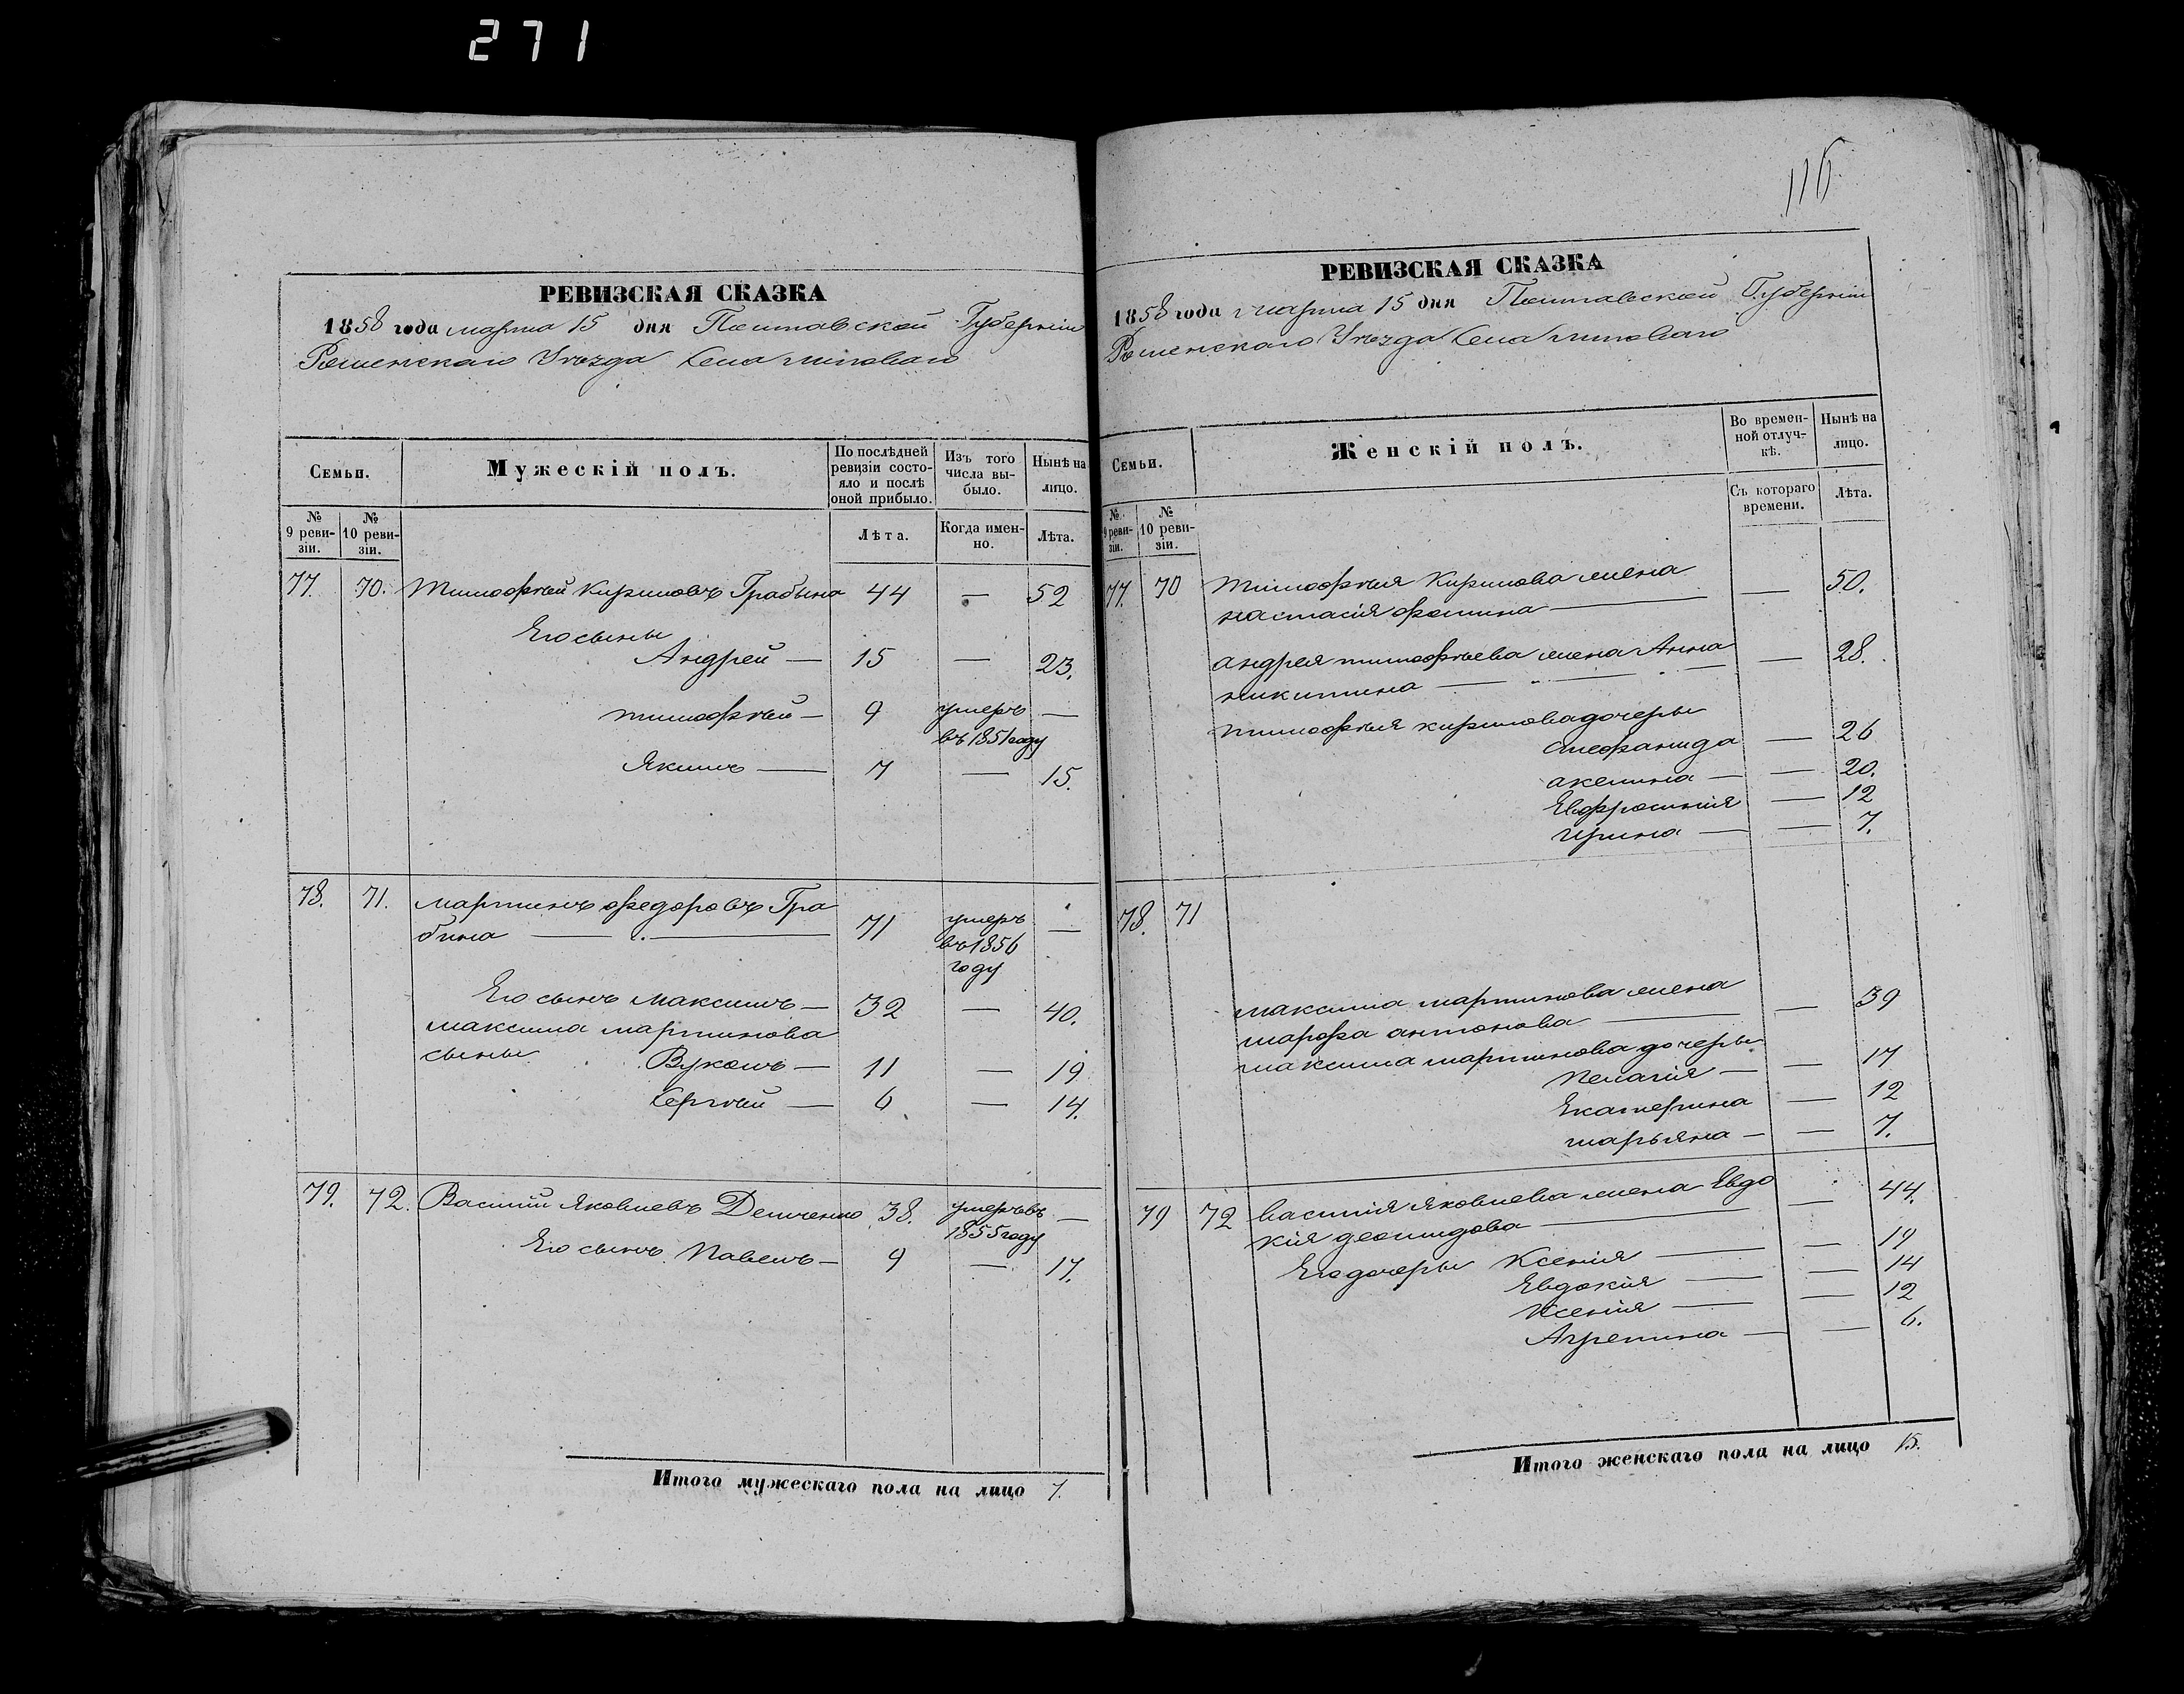 271
РЕВИЗСКАЯ СКАЗКА
1858 года марта 15 дня Полтавской Губерніи
Роменскаго Уѣзда Села Липоваго
Семьи.
Мужескій полъ.
По послѣдней ревизіи состояло и послѣ оной прибыло.
Изъ того числа выбыло.
Нынѣ на лицо.
№ 9 ревизіи.
№ 10 ревизіи.
Лѣта.
Когда именно.
Лѣта.
77. 70. Тимофѣй Кириловъ Грабина 44 — 52
Его сыны
Андрей — 15 — 23.
тимофѣй — 9 умеръ —
въ 1851 году
Якимъ — 7 — 15.
78. 71. мартинъ федоровъ Гра
бина — 71 умеръ —
въ 1856
году
Его сынъ Максимъ — 32 — 40.
максима мартинова
сыны Вуколъ — 11 — 19
Сергѣй — 6 — 14.
79. 72. Василій Яковлевъ Демченко 38. умеръ въ —
1855 году
Его сынъ Павелъ — 9 — 17.
Итого мужескаго пола на лицо 7.
116
РЕВИЗСКАЯ СКАЗКА
1858 года марта 15 дня Полтавской Губерніи
Роменскаго Уѣзда Села Липоваго
Семьи.
Женскій полъ.
Во временной отлучкѣ.
Нынѣ на лицо.
№ 9 ревизіи.
№ 10 ревизіи.
Съ котораго времени.
Лѣта.
77. 70 тимофѣя Кирилова жена
настасія фомина — — 50.
андрея тимофѣева жена Анна
никитина — — 28.
тимофѣя кирилова дочеры
Олефанида — 26
акелина — — 20.
Евфросинія — 12
Ирина — — 7.
78. 71
максима мартинова жена
марфа антонова — — 39
максима мартинова дочеры
Пелагія — — 17
Екатерина — 12
марьяна — — 7.
79 72 василія Яковлева жена Евдо
кія деомидова — — 44.
Его дочеры Ксенія — — 19
Евдокія — — 14
Ксенія — — 12
Агрепина — — 6.
Итого женскаго пола на лицо 15.